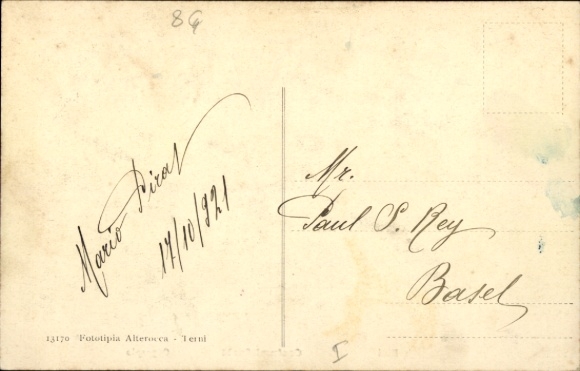 86
Mario Pirat
17/10/921
Mr.
Paul S. Rey
Basel
13170 Fototipia Alterocca - Terni
I